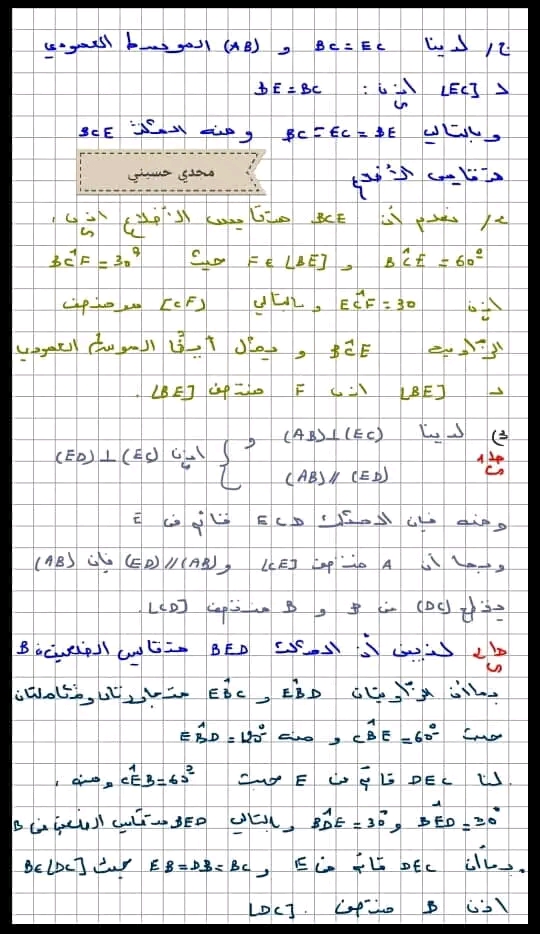 ج/ لدينا BC = EC و (AB) الموسط العمودي
لـ [EC] إذن : BE = BC
و بالتالي BC = EC = BE و منه المثلث BCE
متقايس الأضلاع
مجدي حسيني
نعلم أن BCE متقايس الأضلاع إذن :
BĈE = 60° و F ∈ [BE] حيث BĈF = 30°
إذن EĈF = 30 و بالتالي [CF) منصف
الزاوية BĈE و يمثل أيضا الموسط العمودي
لـ [BE] إذن F منتصف [BE].
3) لدينا (AB) ⊥ (EC) و
(AB) // (ED) إذن (ED) ⊥ (EC)
و منه فإن المثلث ECD قائم في E
و بما أن A منتصف [CE] و (AB) // (ED) فإن (AB)
يقطع (DC) في B و B منتصف [CD].
لنبين أن المثلث BED متقايس الضلعين في B
بما أن الزاويتان EB̂D و EB̂C متجاورتان و متكاملتان
حيث CB̂E = 60° و منه EB̂D = 120°
لنا DEC قائم في E حيث CÊB = 60° و منه ،
BÊD = 30° و BD̂E = 30° و بالتالي BED متقايس الضلعين في B
بما أن DEC قائم في E و EB = DB = BC حيث B ∈ [DC]
إذن B منتصف [DC].